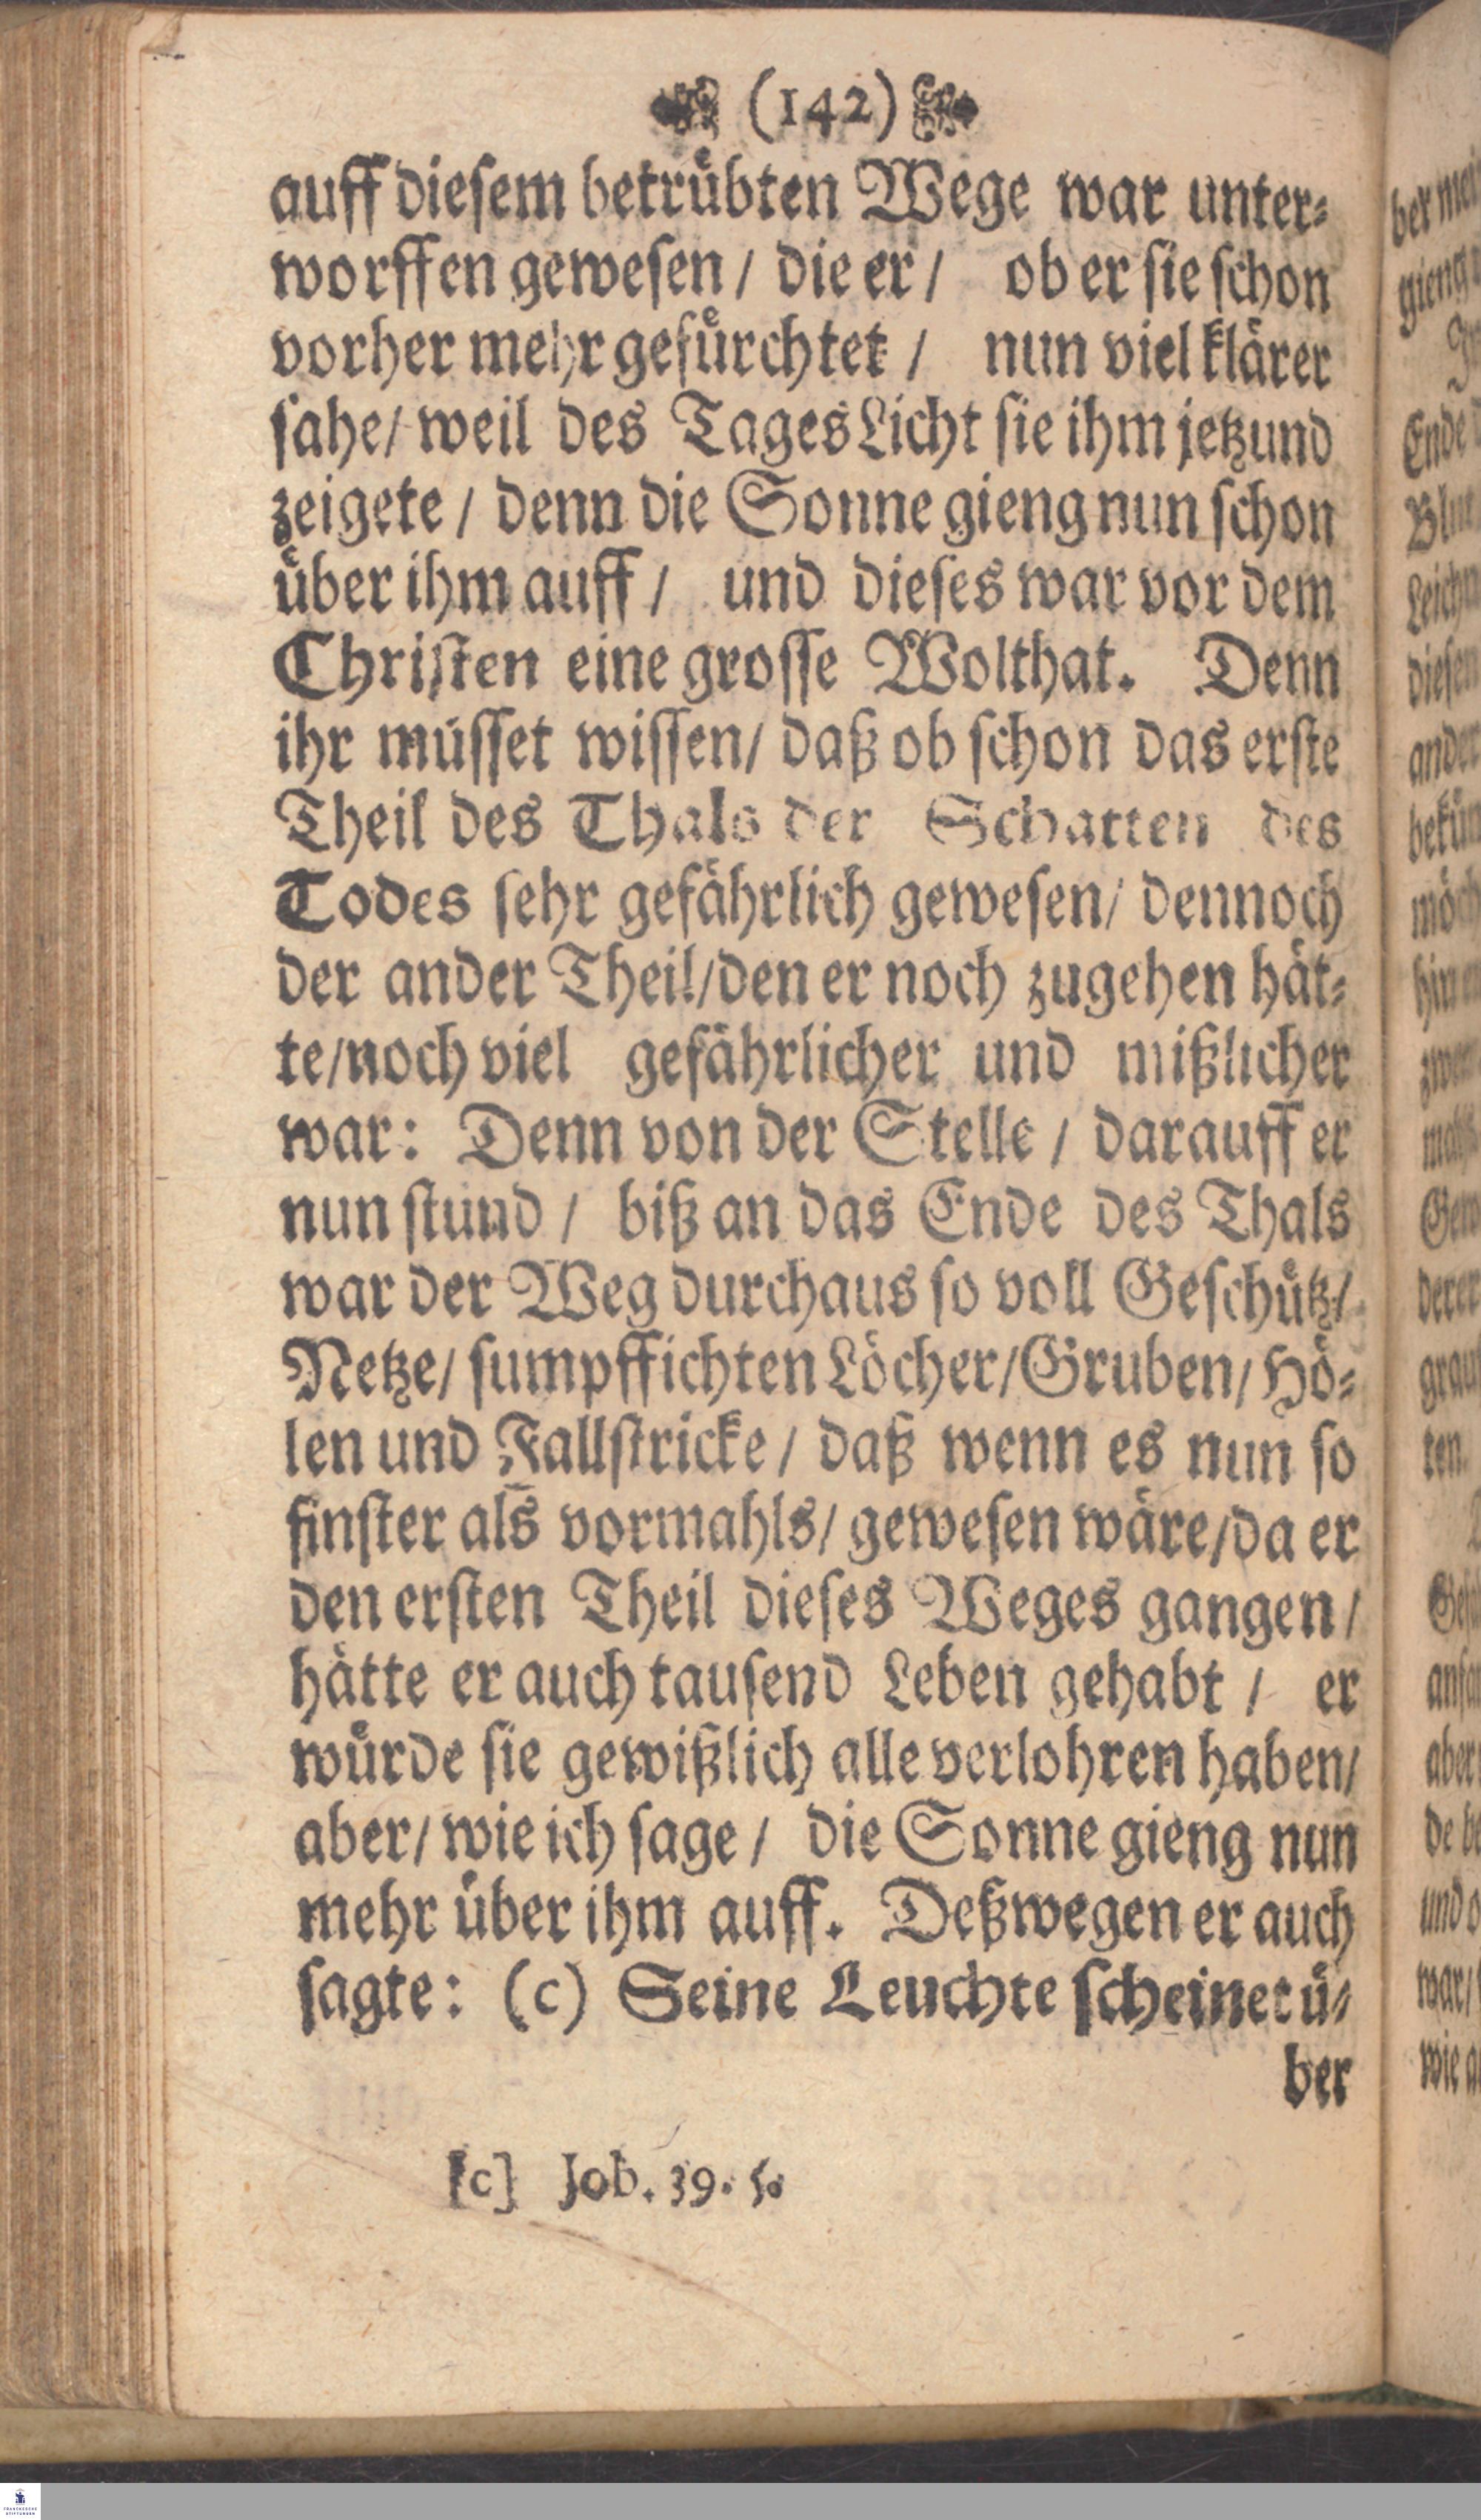 (142)
auff diesem betrübten Wege war unter-
worffen gewesen / die er / ob er sie schon
vorher mehr gefürchtet / nun viel klärer
sahe / weil des Tages Licht sie ihm jetzund
zeigete / denn die Sonne gieng nun schon
über ihm auff / und dieses war vor dem
Christen eine grosse Wolthat. Denn
ihr müsset wissen / daß ob schon das erste
Theil des Thals der Schatten des
Todes sehr gefährlich gewesen / dennoch
der ander Theil / den er noch zugehen hät-
te / noch viel gefährlicher und mißlicher
war: Denn von der Stelle / darauff er
nun stund / biß an das Ende des Thals
war der Weg durchaus so voll Geschütz /
Netze / sumpffichten Löcher / Gruben / Hö-
len und Fallstricke / daß wenn es nun so
finster als vormahls / gewesen wäre / da er
den ersten Theil dieses Weges gangen /
hätte er auch tausend Leben gehabt / er
würde sie gewißlich alle verlohren haben /
aber / wie ich sage / die Sonne gieng nun
mehr über ihm auff. Deßwegen er auch
sagte: (c) Seine Leuchte scheinet ü-
ber
[c] Job. 39. 5.